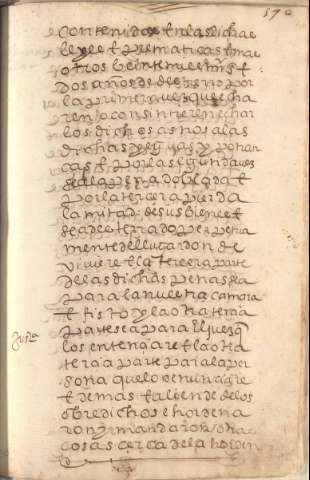 170
contenidos en las dichas
leyes e prematicas e mas
otros veinte mill mrs e
dos años de destierro por
la primera vez que echa
ren o consintieren echar
los dichos asnos a las
dichas yeguas y potran
cas e por la segunda vez
sea la pena doblada e
por la tercera pierda
la mitad de sus bienes e
sea desterrado perpetua
mente del lugar donde
viviere e la tercera parte
de las dichas penas sea
para la nuestra camara
e fisco y la otra tercia
parte sea para el juez q
los sentenciare e la otra
tercia parte para la per
sona que lo denunciare
e demas e allende de lo
sobredicho se hordena
ron y mandaron otras
cosas cerca de la horden